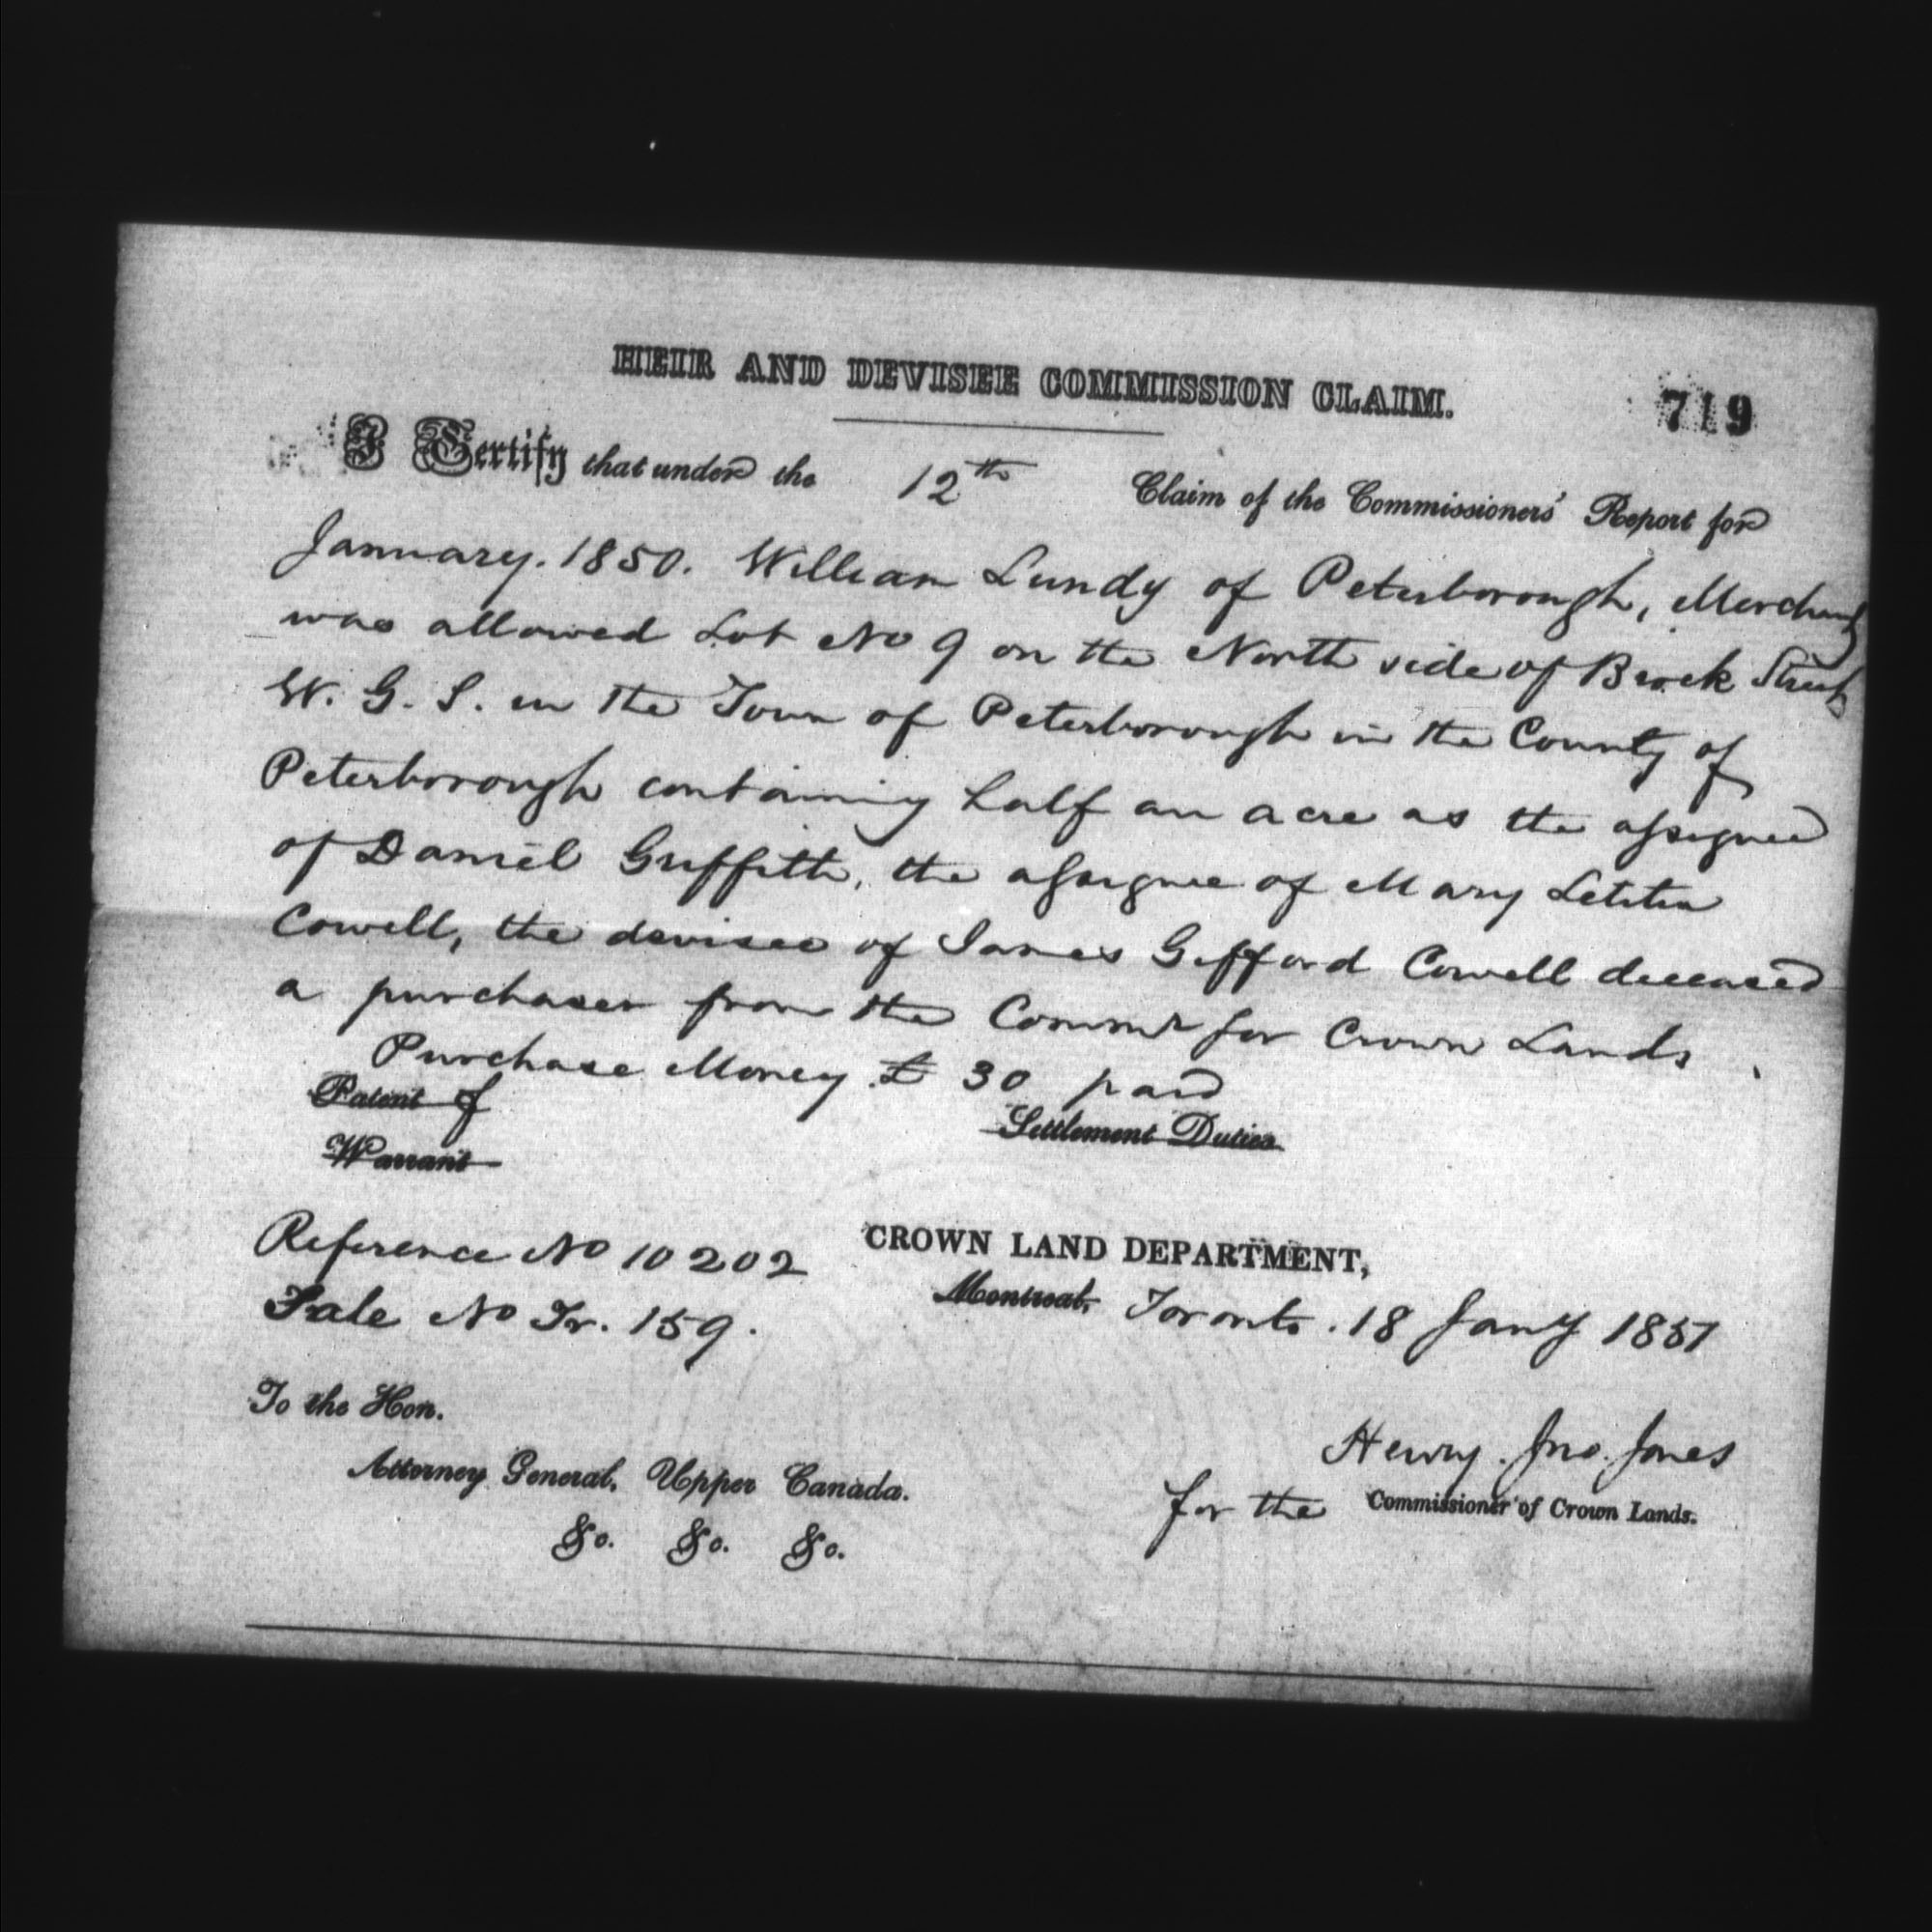 HEIR AND DEVISEE COMMISSION CLAIM.
719
I Certify that under the 12th Claim of the Commissioners' Report for
January. 1850. William Lundy of Peterborough, Merchant
was allowed Lot No 9 on the North side of Brock Street
W. G. S. in the Town of Peterborough in the County of
Peterborough containing half an acre as the assignee
of Daniel Griffith, the assignee of Mary Letitia
Cowell, the devisee of James Gifford Cowell deceased
a purchaser from the Commr for Crown Lands
Purchase Money £ 30 paid
Patent of
Settlement Duties
Warrant
Reference No 10202
CROWN LAND DEPARTMENT,
Sale No Tr. 159.
Montreal, Toronto. 18 Jany 1851
To the Hon.
Attorney General, Upper Canada.
&c. &c. &c.
Henry. Jno. Jones
for the Commissioner of Crown Lands.